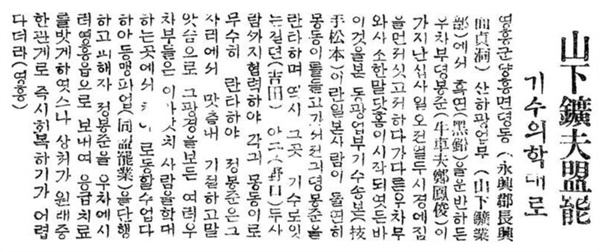 山下鑛夫盟罷
기수의학대로
영흥군장흥면뎡동(永興郡長興
面貞洞) 산하광업부(山下鑛業
部)에서 흑연(黑鉛)을운반하든
우차부뎡봉준(牛車夫鄭鳳俊)이
가지난십사일오전열두시경에짐
을먼저싯고저하다가다른우차부
와사소한말닷홈이시작되엿든바
이것을본 동광업부기수송본(技
手松本)이란일본사람이 돌연히
몽둥이를들고가서전긔뎡봉준을
란타하며 또시 그곳 기수로잇
는길뎐(吉田) 野口)두사
람까지협력하야 각긔 몽둥이로
무수히 란타하야 정봉준은그
자리에서 맛츰내 긔절하고말
앗슴으로 그광경을보든 여러우
차부들은 사람을학대
하는곳에서 로동할수업다
하야동맹파업(同盟罷業)을단행
하고피해자 정봉준을 우차에시
러영흥읍으로 보내여 응급치료
를밧게하엿스나 상처가 원래중
한관계로 즉시회복하기가 어렵
다더라(영흥)